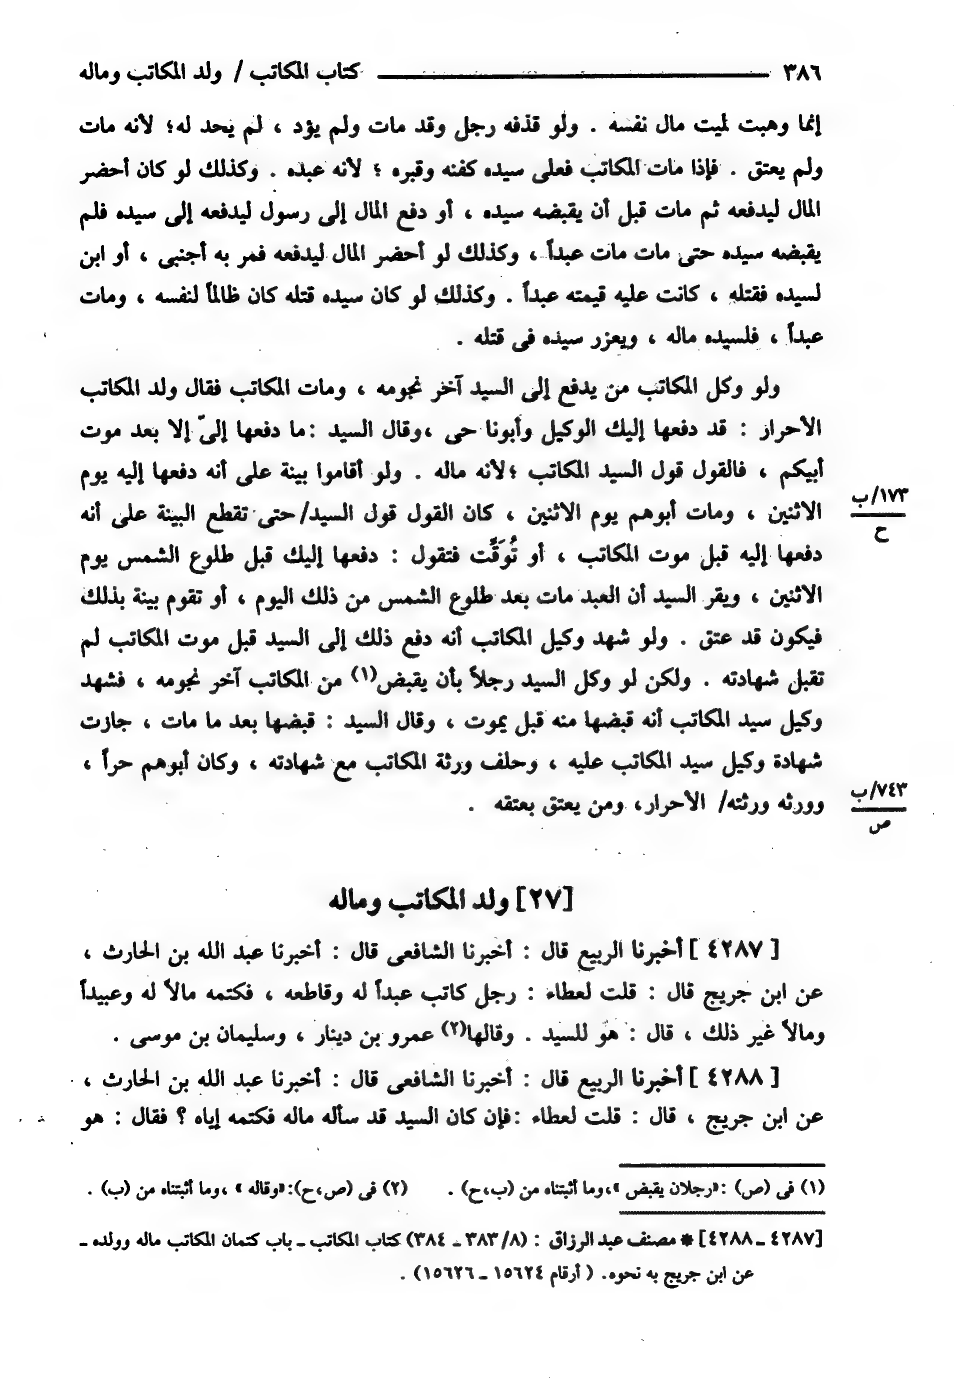 ٣٨٦ كتاب المكاتب / ولد المكاتب وماله
إنما وهبت لميت مال نفسه . ولو قذفه رجل وقد مات ولم يؤد ، لم يحد له؛ لأنه مات
ولم يعتق . فإذا مات المكاتب فعلى سيده كفنه وقبره ؛ لأنه عبده . وكذلك لو كان أحضر
المال ليدفعه ثم مات قبل أن يقبضه سيده ، أو دفع المال إلى رسول ليدفعه إلى سيده فلم
يقبضه سيده حتى مات مات عبداً ، وكذلك لو أحضر المال ليدفعه فمر به أجنبى ، أو ابن
لسيده فقتله ، كانت عليه قيمته عبداً . وكذلك لو كان سيده قتله كان ظالماً لنفسه ، ومات
عبداً ، فلسيده ماله ، ويعزر سيده فى قتله .
ولو وكل المكاتب من يدفع إلى السيد آخر نجومه ، ومات المكاتب فقال ولد المكاتب
الأحرار : قد دفعها إليك الوكيل وأبونا حى ،وقال السيد :ما دفعها إلىّ إلا بعد موت
أبيكم ، فالقول قول السيد المكاتب ؛لأنه ماله . ولو أقاموا بينة على أنه دفعها إليه يوم
١٧٣/ب
ح
الاثنين ، ومات أبوهم يوم الاثنين ، كان القول قول السيد/حتى تقطع البينة على أنه
دفعها إليه قبل موت المكاتب ، أو تُوَقِّت فتقول : دفعها إليك قبل طلوع الشمس يوم
الاثنين ، ويقر السيد أن العبد مات بعد طلوع الشمس من ذلك اليوم ، أو تقوم بينة بذلك
فيكون قد عتق . ولو شهد وكيل المكاتب أنه دفع ذلك إلى السيد قبل موت المكاتب لم
تقبل شهادته . ولكن لو وكل السيد رجلاً بأن يقبض(١) من المكاتب آخر نجومه ، فشهد
وكيل سيد المكاتب أنه قبضها منه قبل يموت ، وقال السيد : قبضها بعد ما مات ، جازت
شهادة وكيل سيد المكاتب عليه ، وحلف ورثة المكاتب مع شهادته ، وكان أبوهم حراً ،
٧٤٣/ب
ص
وورثه ورثته/ الأحرار، ومن يعتق بعتقه .
[٢٧] ولد المكاتب وماله
[ ٤٢٨٧ ] أخبرنا الربيع قال : أخبرنا الشافعى قال : أخبرنا عبد الله بن الحارث ،
عن ابن جريج قال : قلت لعطاء : رجل كاتب عبداً له وقاطعه ، فكتمه مالاً له وعبيداً
ومالاً غير ذلك ، قال : هو للسيد . وقالها(٢) عمرو بن دينار ، وسليمان بن موسى .
[ ٤٢٨٨ ] أخبرنا الربيع قال : أخبرنا الشافعى قال : أخبرنا عبد الله بن الحارث ،
عن ابن جريج ، قال : قلت لعطاء :فإن كان السيد قد سأله ماله فكتمه إياه ؟ فقال : هو
(١) فى (ص) :«رجلان يقبض »،وما أثبتناه من (ب،ح) . (٢) فى (ص،ح):«وقاله » ،وما أثبتناه من (ب) .
[٤٢٨٧ ـ ٤٢٨٨] * مصنف عبد الرزاق : (٨/ ٣٨٣ ـ ٣٨٤) كتاب المكاتب ـ باب كتمان المكاتب ماله وولده ـ
عن ابن جريج به نحوه. ( أرقام ١٥٦٢٤ ـ ١٥٦٢٦) .